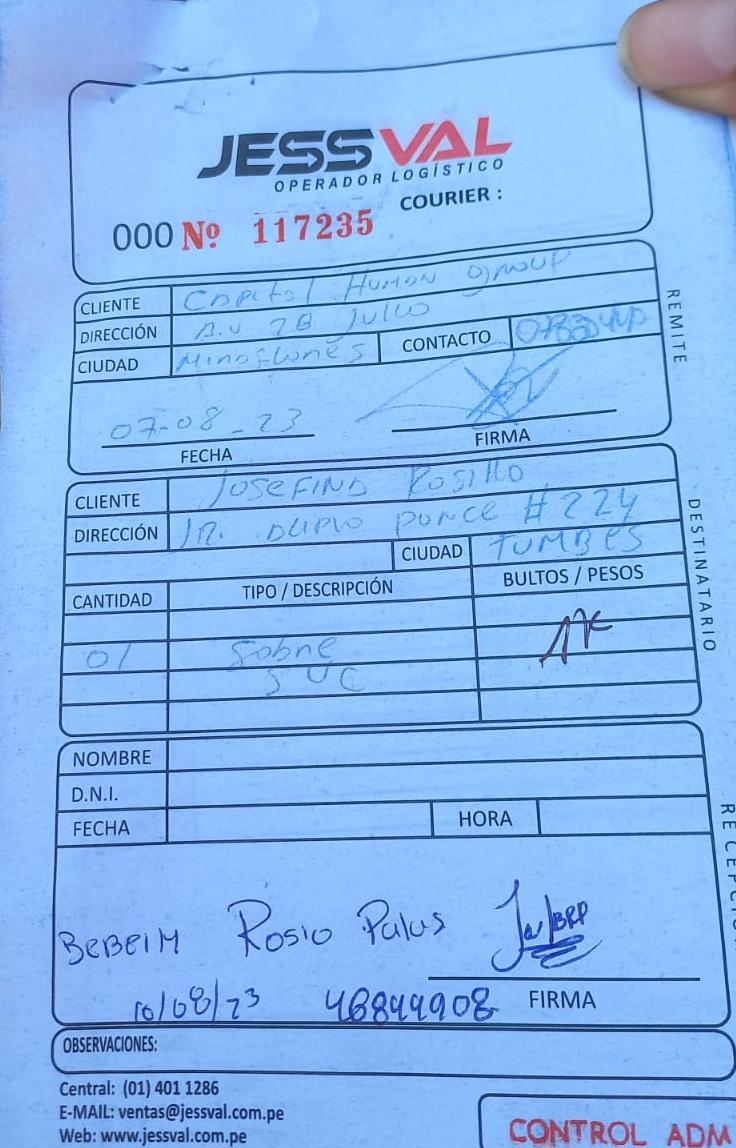 JESSVAL
OPERADOR LOGÍSTICO
COURIER :
000 Nº 117235
CLIENTE Capital Human Group
DIRECCIÓN A.v 28 Julio
CIUDAD Miraflores CONTACTO
REMITE
07-08-23
FECHA FIRMA
CLIENTE Josefina Rosillo
DIRECCIÓN Jr. Ponce # 224
CIUDAD TUMBES
DESTINATARIO
CANTIDAD TIPO / DESCRIPCIÓN BULTOS / PESOS
01 Sobre 1K
NOMBRE
D.N.I.
FECHA HORA
Rosio
10/08/23 46844908 FIRMA
OBSERVACIONES:
Central: (01) 401 1286
E-MAIL: ventas@jessval.com.pe
Web: www.jessval.com.pe
CONTROL ADM